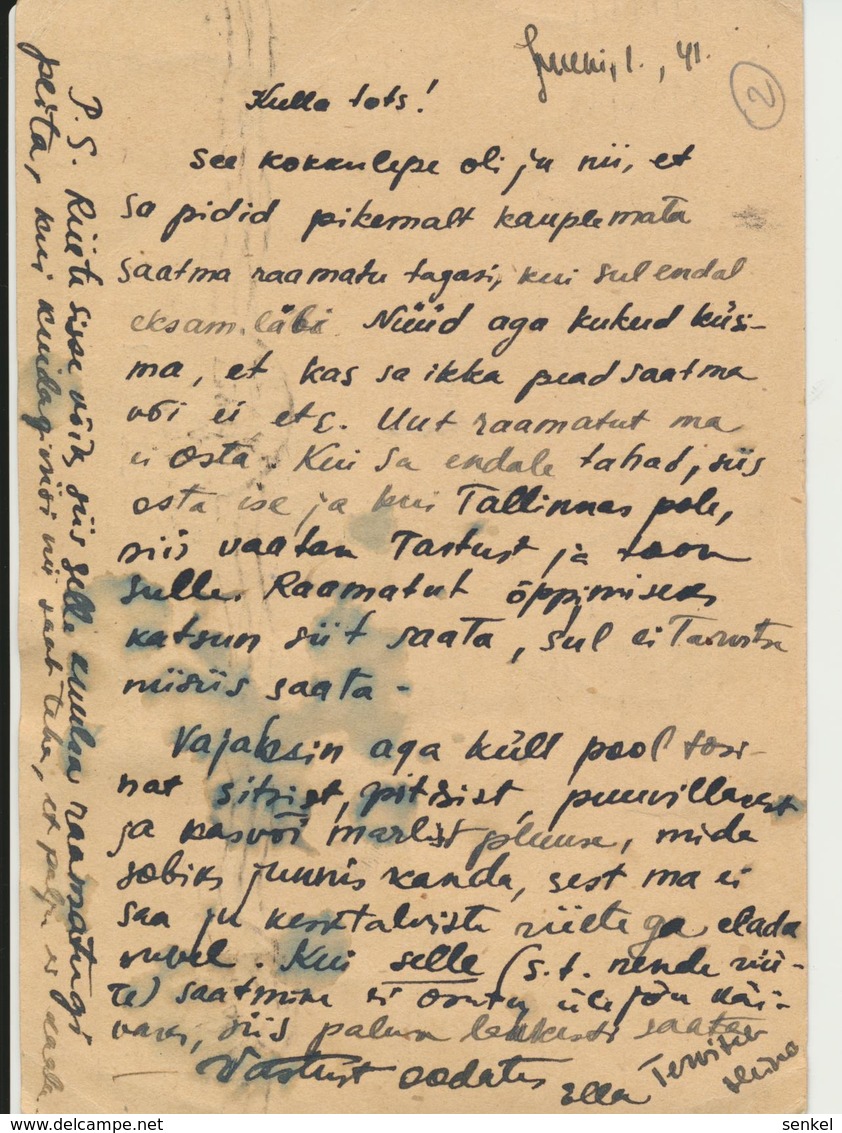 Juuni, 1. , 41.
2
Kulla tots!
See kokkulepe oli ju nii, et
sa pidid pikemalt kauplemata
saatma raamatu tagasi, kui sul endal
eksam läbi. Nüüd aga kukud küsi-
ma, et kas sa ikka pead saatma
või ei etc. Uut raamatut ma
ei osta. Kui sa endale tahad, siis
osta ise ja kui Tallinnas pole,
siis vaatan Tartust ja toon
sulle. Raamatut õppimiseks
katsun siit saata, sul ei tarvitse
niisiis saata -
Vajaksin aga küll pool tosi-
nat sitsist, pitsist, puuvillasest
ja kasvõi marlist pluuse, mida
sobiks juunis kanda, sest ma ei
saa ju kesktalviste riietega elada
suvel. Kui selle (s.t. nende rii-
te) saatmine ei osutu üle jõu käi-
vaks, siis palun lahkesti saata.
Vastust oodates
Ella
Tervitusi
P.S. Riiete sisse võiks siis selle raamatugi
peita, kui kuidagi nii saab teha, et palju ei kaalu.
senkel